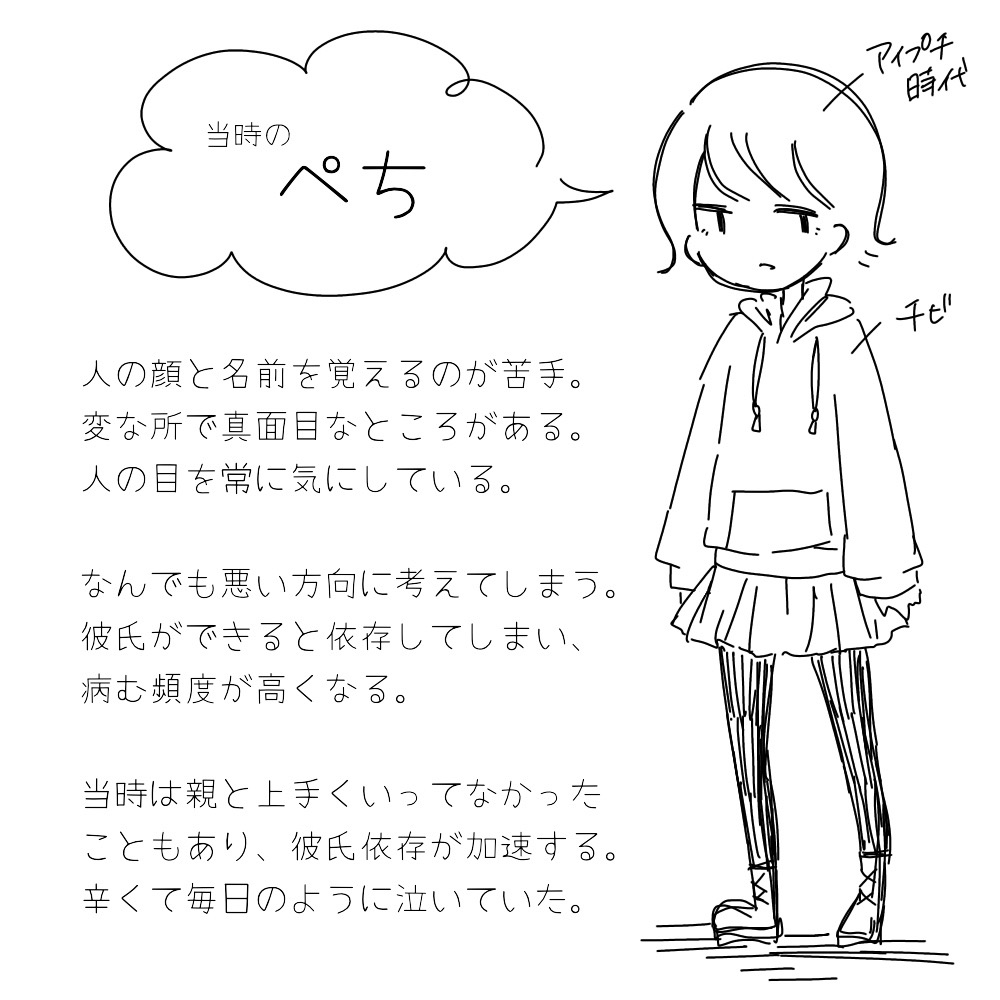 当時の
ぺち
アイプチ
時代
チビ
人の顔と名前を覚えるのが苦手。
変な所で真面目なところがある。
人の目を常に気にしている。
なんでも悪い方向に考えてしまう。
彼氏ができると依存してしまい、
病む頻度が高くなる。
当時は親と上手くいってなかった
こともあり、彼氏依存が加速する。
辛くて毎日のように泣いていた。